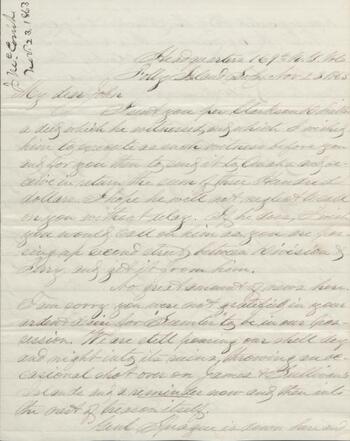 Jno. McConihe
Nov 23, 1863
Headquarters 169th N.Y. Vols
Folly Island S.C. Nov 23 1863
My dear John
I send you for Clarkson
a deed which he witnessed, and which I wish
him to execute as such witness before you
and for you then to send it to Omaha and re-
ceive in return the sum of four Hundred
dollars. I hope he will not neglect to call
on you without delay. If he does, I wish
you would call on him as you are pas-
sing up second street between Division &
Ferry, and get it from him.
No great amount of news here.
I am sorry you were not gratified in your
ardent desire for Sumter to be in our pos-
session. We are still pouring our shell day
and night into its ruins, throwing an oc-
casional shot over on James & Sullivan's
Islands and a reminder now and then into
the nest of treason itself.
Genl Sprague is down here and